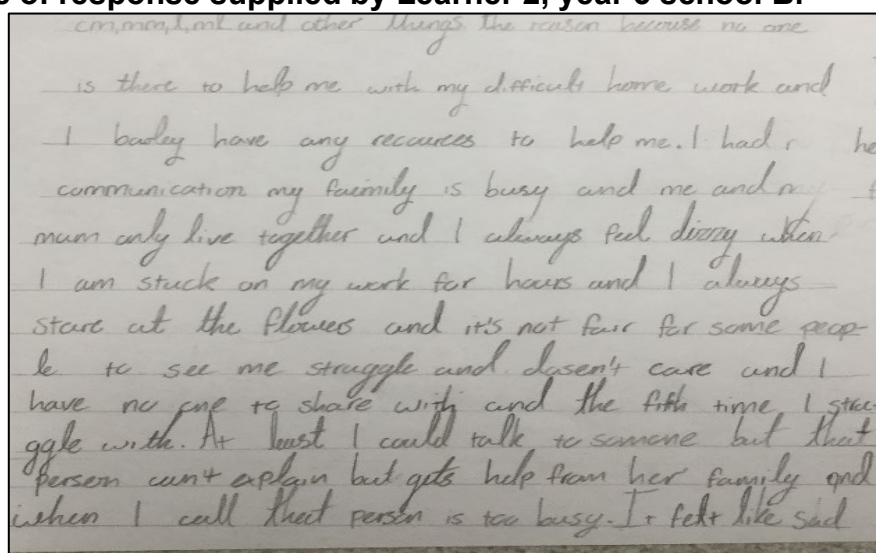 of response supplied by Learner 2, year 6 school B.
cm,mm,l,ml and other things the reason becouse no one
is there to help me with my difficult home work and
I barley have any recources to help me. I had
communication my faimily is busy and me and
mum only live together and I always feel dizzy when
I am stuck on my work for hours and I always
stare at the flowers and it's not fair for some peop-
le to see me struggle and dosen't care and I
have no one to share with and the fifth time I stru-
ggle with. At least I could talk to somone but that
person can't explain but gets help from her family and
when I call that person is too busy. It felt like sad